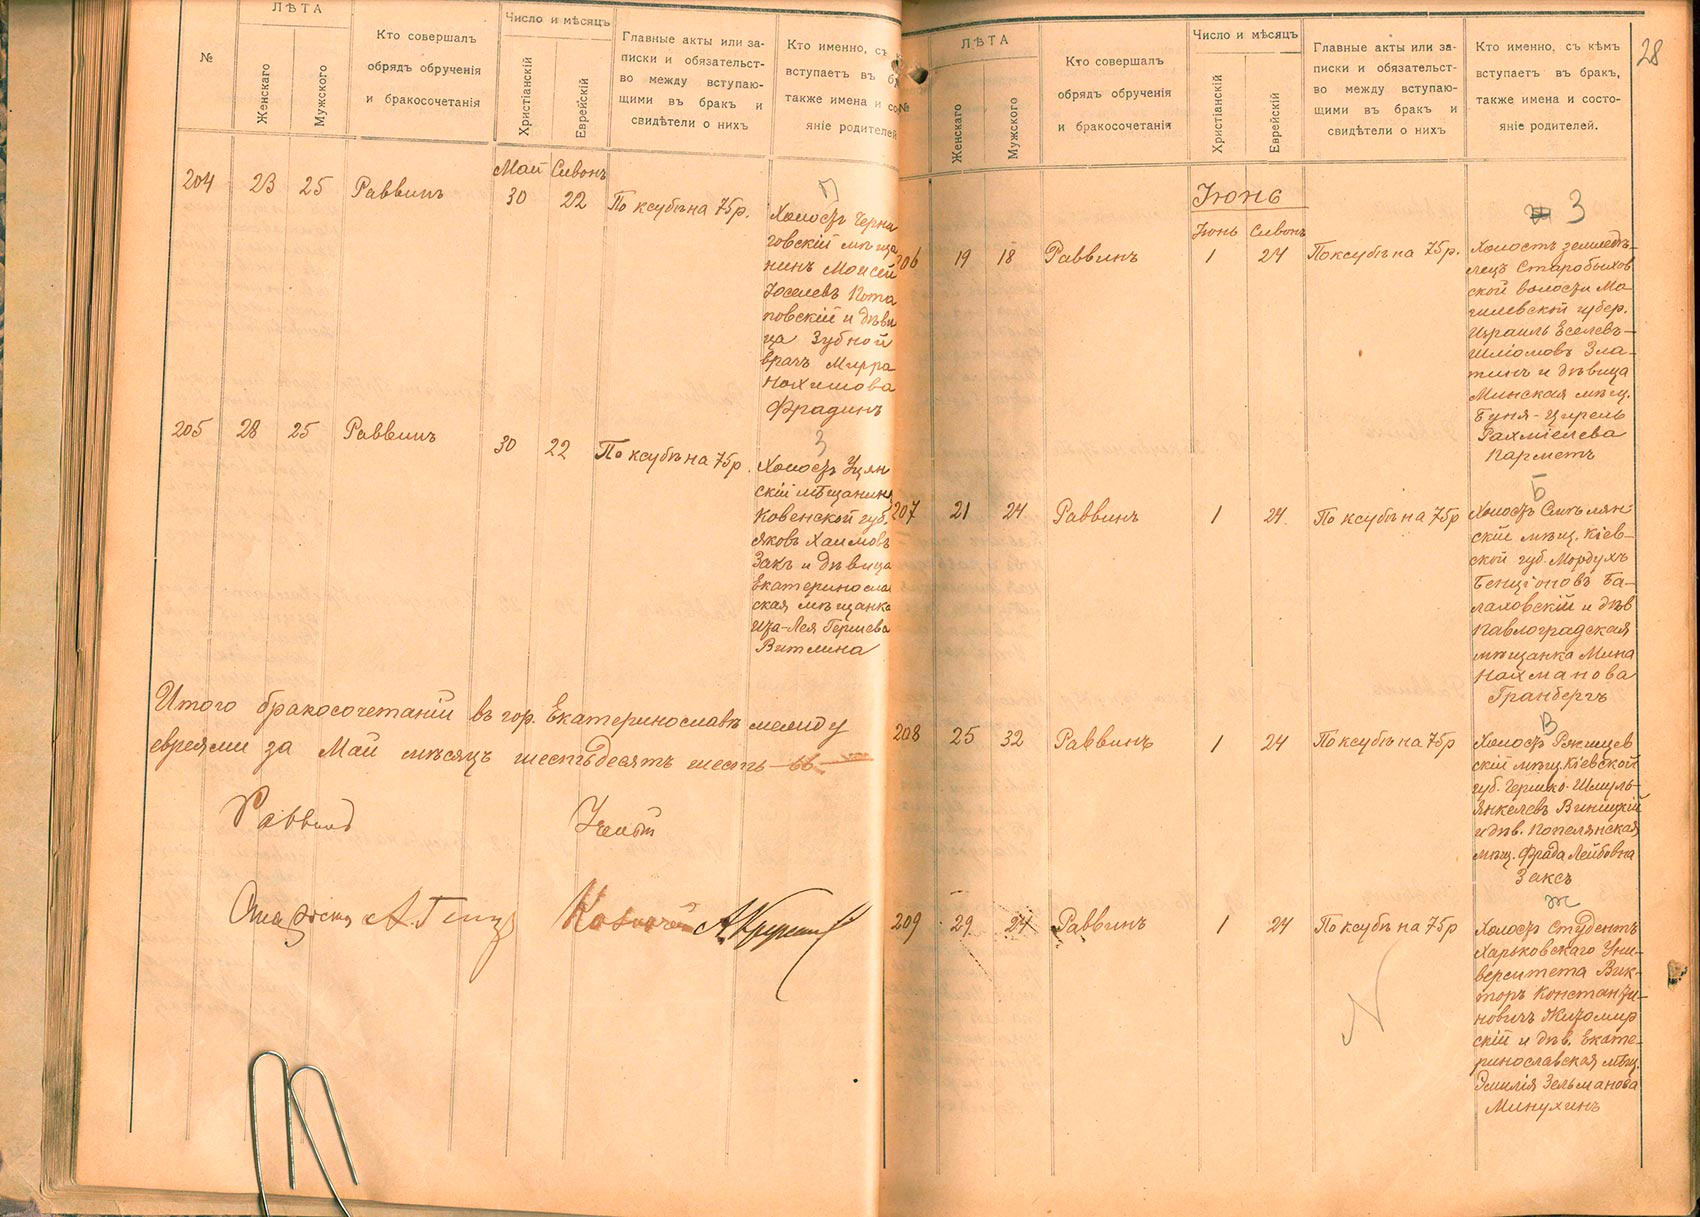 №
ЛѢТА
Женскаго
Мужского
Кто совершалъ
обрядъ обрученія
и бракосочетанія
Число и мѣсяцъ
Христіанскій
Еврейскій
Главные акты или за-
писки и обязательст-
во между вступаю-
щими въ бракъ и
свидѣтели о нихъ
Кто именно, съ
вступаетъ въ
также имена и со
яніе родителей
Май Сивонъ
204 23 25 Раввинъ 30 22 По ксубѣ на 75р.
П
Холостъ Черни
говскій мѣща
нинъ Моисей
Іоселевъ Пота
повскій и дѣви
ца Зубной
врачъ Мирра
Нохимова
Фрадинъ
205 28 25 Раввинъ 30 22 По ксубѣ на 75р.
З
Холостъ Уцян
скій мѣщанинъ
Ковенской губ.
Яковъ Хаимовъ
Закъ и дѣвица
Екатеринослав
ская мѣщанка
Иза-Лея Гершева
Витлина
Итого бракосочетаній въ гор. Екатеринославѣ между
евреями за Май мѣсяцъ шестьдесятъ шесть 66
Раввинъ
Староста А.
28
№
ЛѢТА
Женскаго
Мужского
Кто совершалъ
обрядъ обрученія
и бракосочетанія
Число и мѣсяцъ
Христіанскій
Еврейскій
Главные акты или за-
писки и обязательст-
во между вступаю-
щими въ бракъ и
свидѣтели о нихъ
Кто именно, съ кѣмъ
вступаетъ въ бракъ,
также имена и состо-
яніе родителей.
Іюнь
Іюнь Сивонъ
206 19 18 Раввинъ 1 24 По ксубѣ на 75р.
З
Холостъ землед҄ѣ-
лецъ Старобыхов
ской волости Мо-
гилевской губер.
Израиль Еселевъ-
Шліомовъ Зла-
тинъ и дѣвица
Минская мѣщ.
Буня-Цирель
Рахміелева
Парметъ
207 21 24 Раввинъ 1 24 По ксубѣ на 75р
Б
Холостъ Смѣлян-
скій мѣщ. Кіев-
ской губ. Мордухъ
Бенціоновъ Ба-
лаховскій и дѣв
Павлоградская
мѣщанка Мина
Нахманова
Гранбергъ
208 25 32 Раввинъ 1 24 По ксубѣ на 75р
В
Холостъ Ржищев
скій мѣщ. Кіевской
губ. Гершко-Шмуль-
Янкелевъ Виницкій
и дѣв. Попелянская
мѣщ. Фрада Лейбовна
Заксъ
209 29 24 Раввинъ 1 24 По ксубѣ на 75р
Ж
Холостъ студентъ
Харьковскаго Уни-
верситета Вик-
торъ Константи-
новичъ Житомир
скій и дѣв. Екате-
ринославская мѣщ.
Эмилія Зельманова
Минухинъ